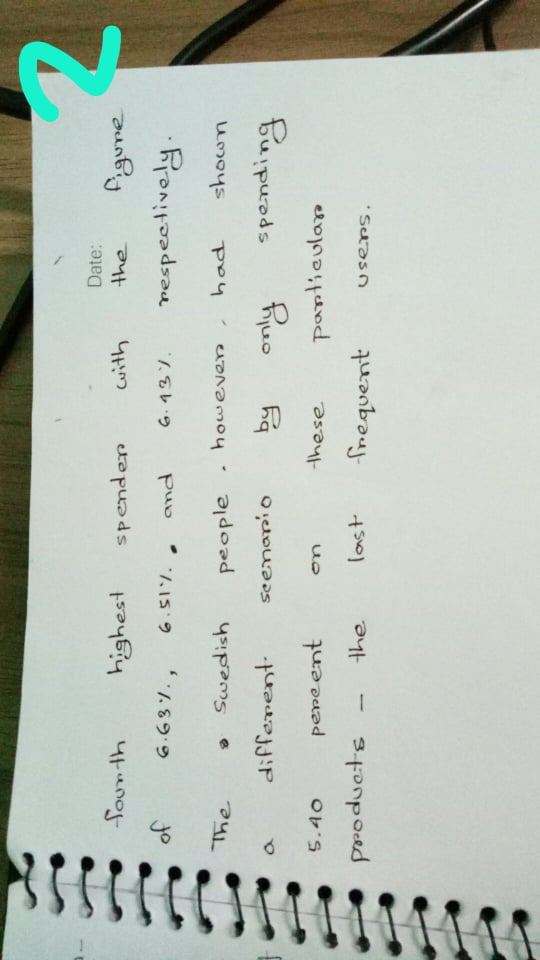 2
Date:
fourth highest spender with the figure
of 6.63%, 6.51%. and 6.43% respectively.
The Swedish people, however, had shown
a different scenario by only spending
5.40 percent on these particular
products - the last frequent users.